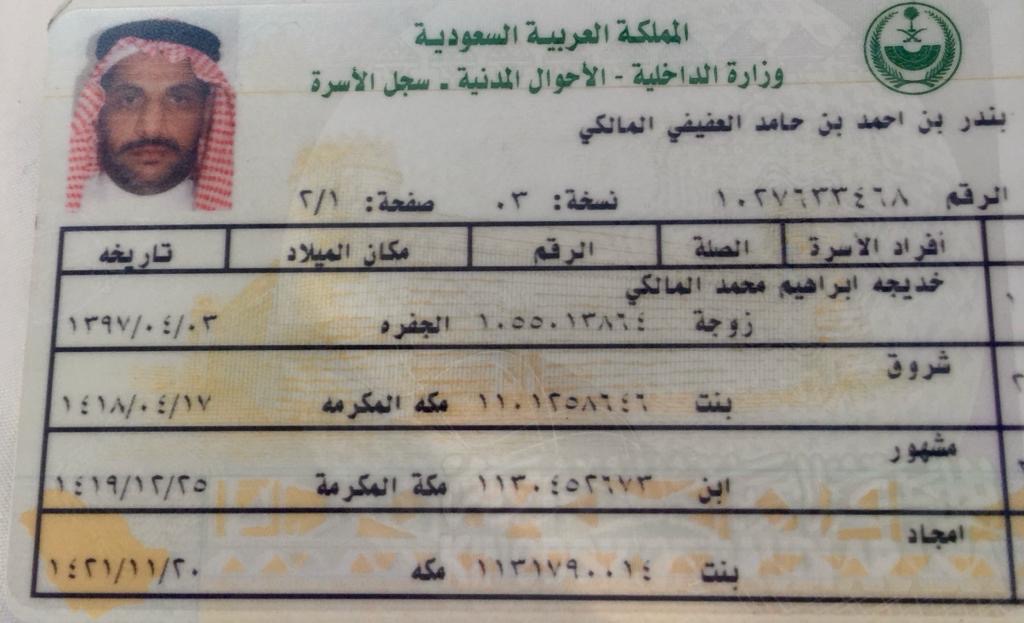 المملكة العربية السعودية
وزارة الداخلية - الأحوال المدنية - سجل الأسرة
بندر بن احمد بن حامد العفيفي المالكي
الرقم ١٠٢٧٦٣٣٤٦٨ نسخة: ٠٣ صفحة: ٢/١
أفراد الأسرة الصلة الرقم مكان الميلاد تاريخه
١ خديجه ابراهيم محمد المالكي
زوجة ١٠٥٥٠١٣٨٦٤ الجفره ١٣٩٧/٠٤/٠٣
شروق
٢ بنت ١١٠١٢٥٨٦٤٦ مكه المكرمه ١٤١٨/٠٤/١٧
مشهور
ابن ١١٣٠٤٥٢٦٧٣ مكة المكرمة ١٤١٩/١٢/٢٥
امجاد
بنت ١١٣١٧٩٠٠١٤ مكه ١٤٢١/١١/٢٠